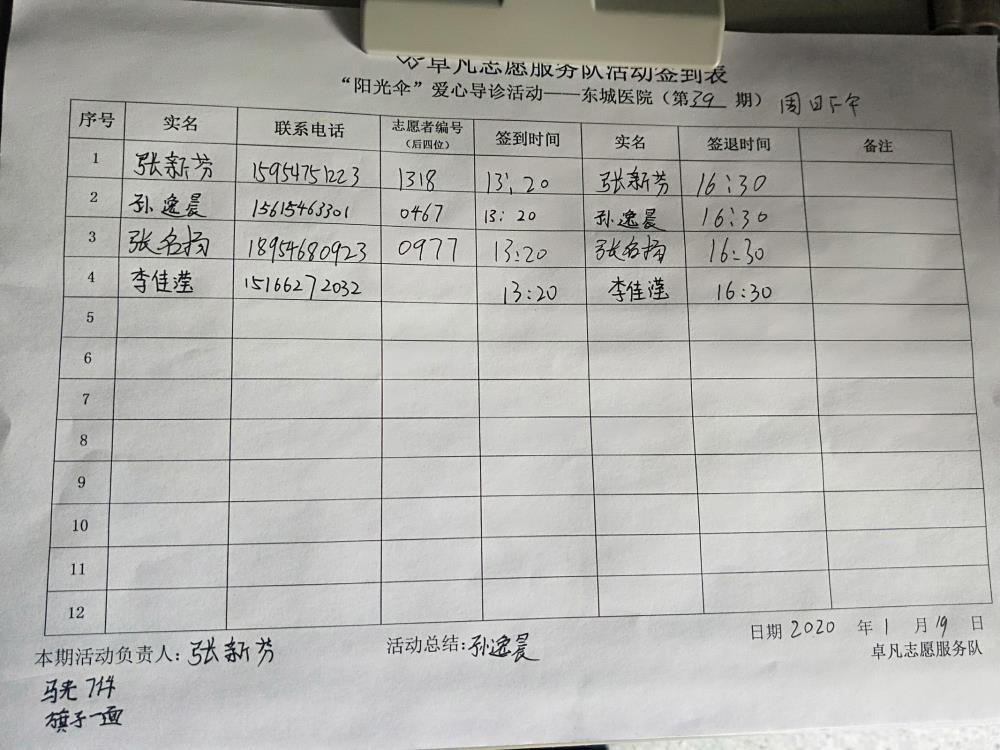 卓凡志愿服务队活动签到表
“阳光伞”爱心导诊活动——东城医院（第39期） 周日下午
序号 实名 联系电话 志愿者编号（后四位） 签到时间 实名 签退时间 备注
1 张新芬 15954751223 1318 13:20 张新芬 16:30
2 孙逸晨 15615463301 0467 13:20 孙逸晨 16:30
3 张名扬 18954680923 0977 13:20 张名扬 16:30
4 李佳滢 15166272032 13:20 李佳滢 16:30
5
6
7
8
9
10
11
12
本期活动负责人：张新芬 活动总结：孙逸晨 日期 2020 年 1 月 19 日
卓凡志愿服务队
7件
旗子一面